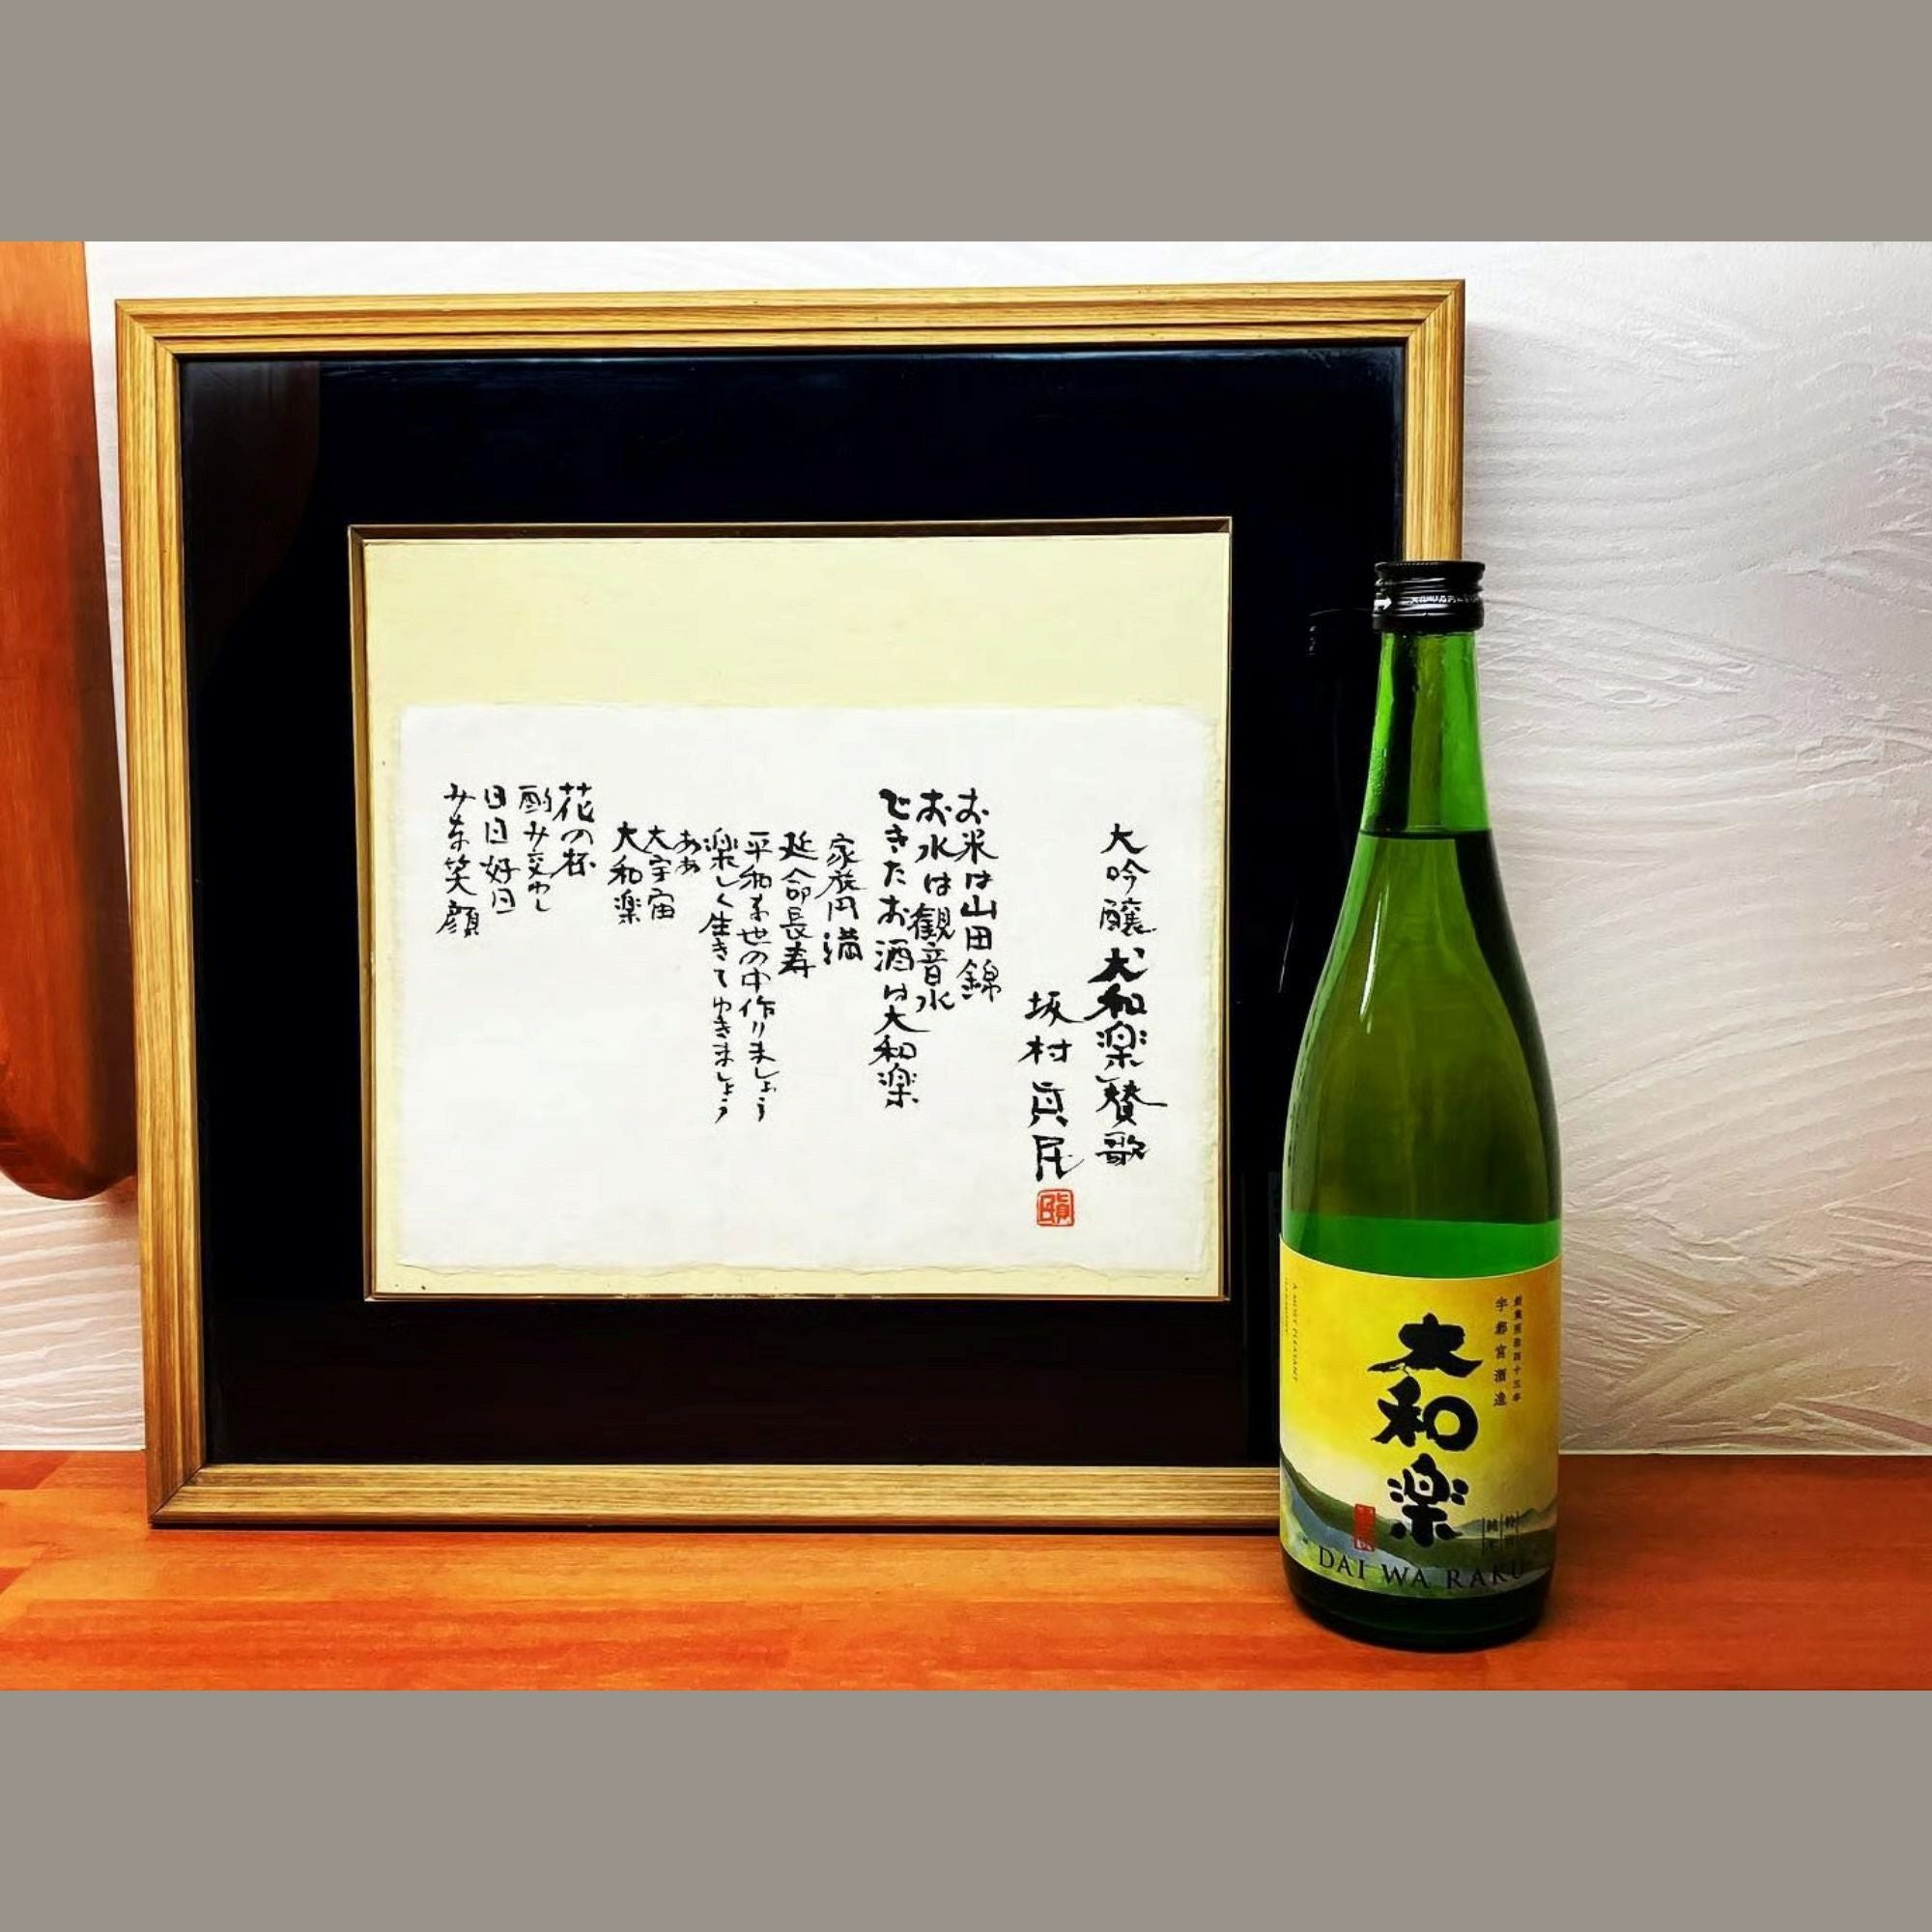 大吟醸大和楽賛歌
坂村真民
お米は山田錦
お水は観音水
できたお酒は大和楽
家族円満
延命長寿
平和な世の中作りましょう
楽しく生きてゆきましょう
ああ
大宇宙
大和楽
花の杯
酌み交わし
日日好日
みな笑顔
宇都宮酒造
大和楽
DAI WA RAKU